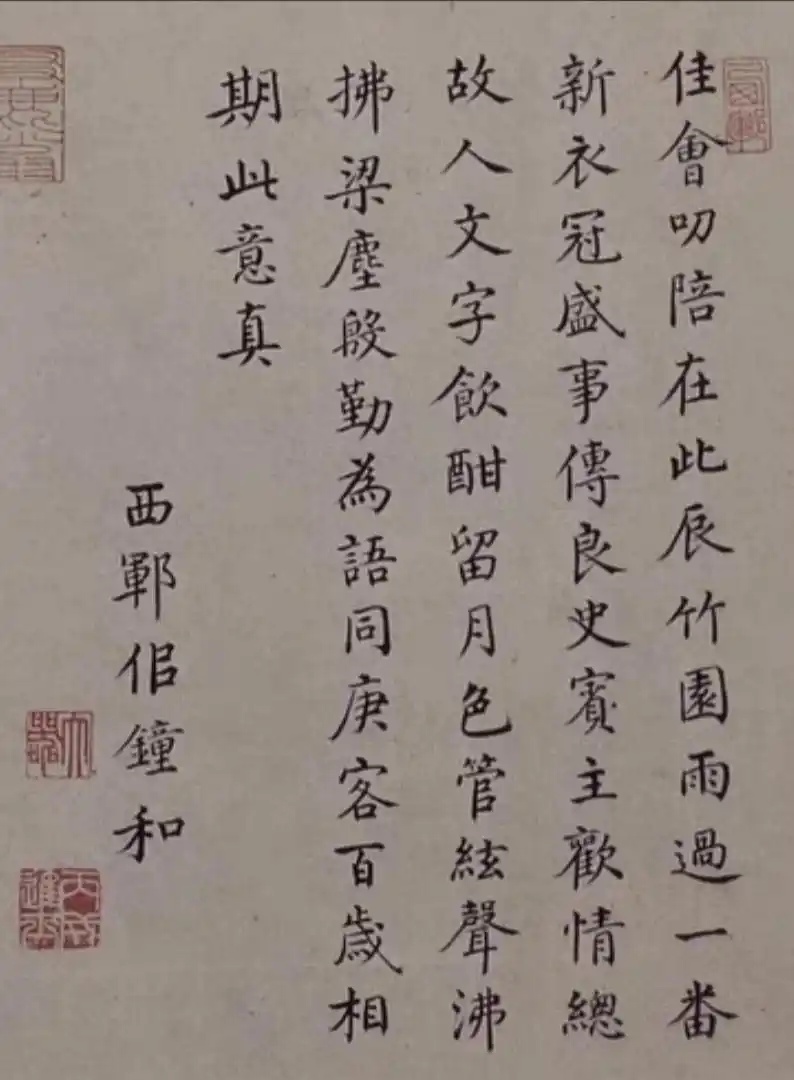 佳會叨陪在此辰竹園雨過一番
新衣冠盛事傳良史賓主歡情總
故人文字飲酣留月色管絃聲沸
拂梁塵殷勤為語同庚客百歲相
期此意真
西鄆佀鐘和